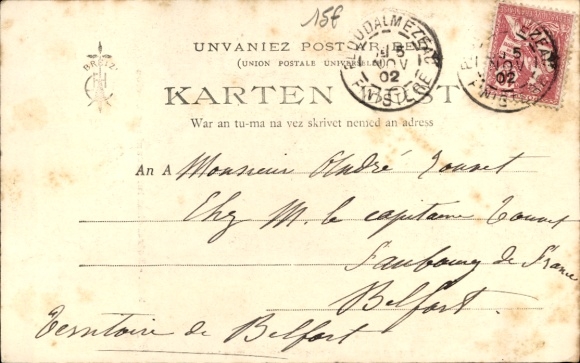 15f
BREIZ
UNVANIEZ POST
(UNION POSTALE UNIVERSELLE)
UDALMEZEAU
5
NOV
02
FINISTERE
5
NOV
02
KARTEN POST
War an tu-ma na vez skrivet nemed an adress
An A Monsieur André Touvet
Chez M. le capitaine Touvet
Faubourg de France
Belfort.
Territoire de Belfort